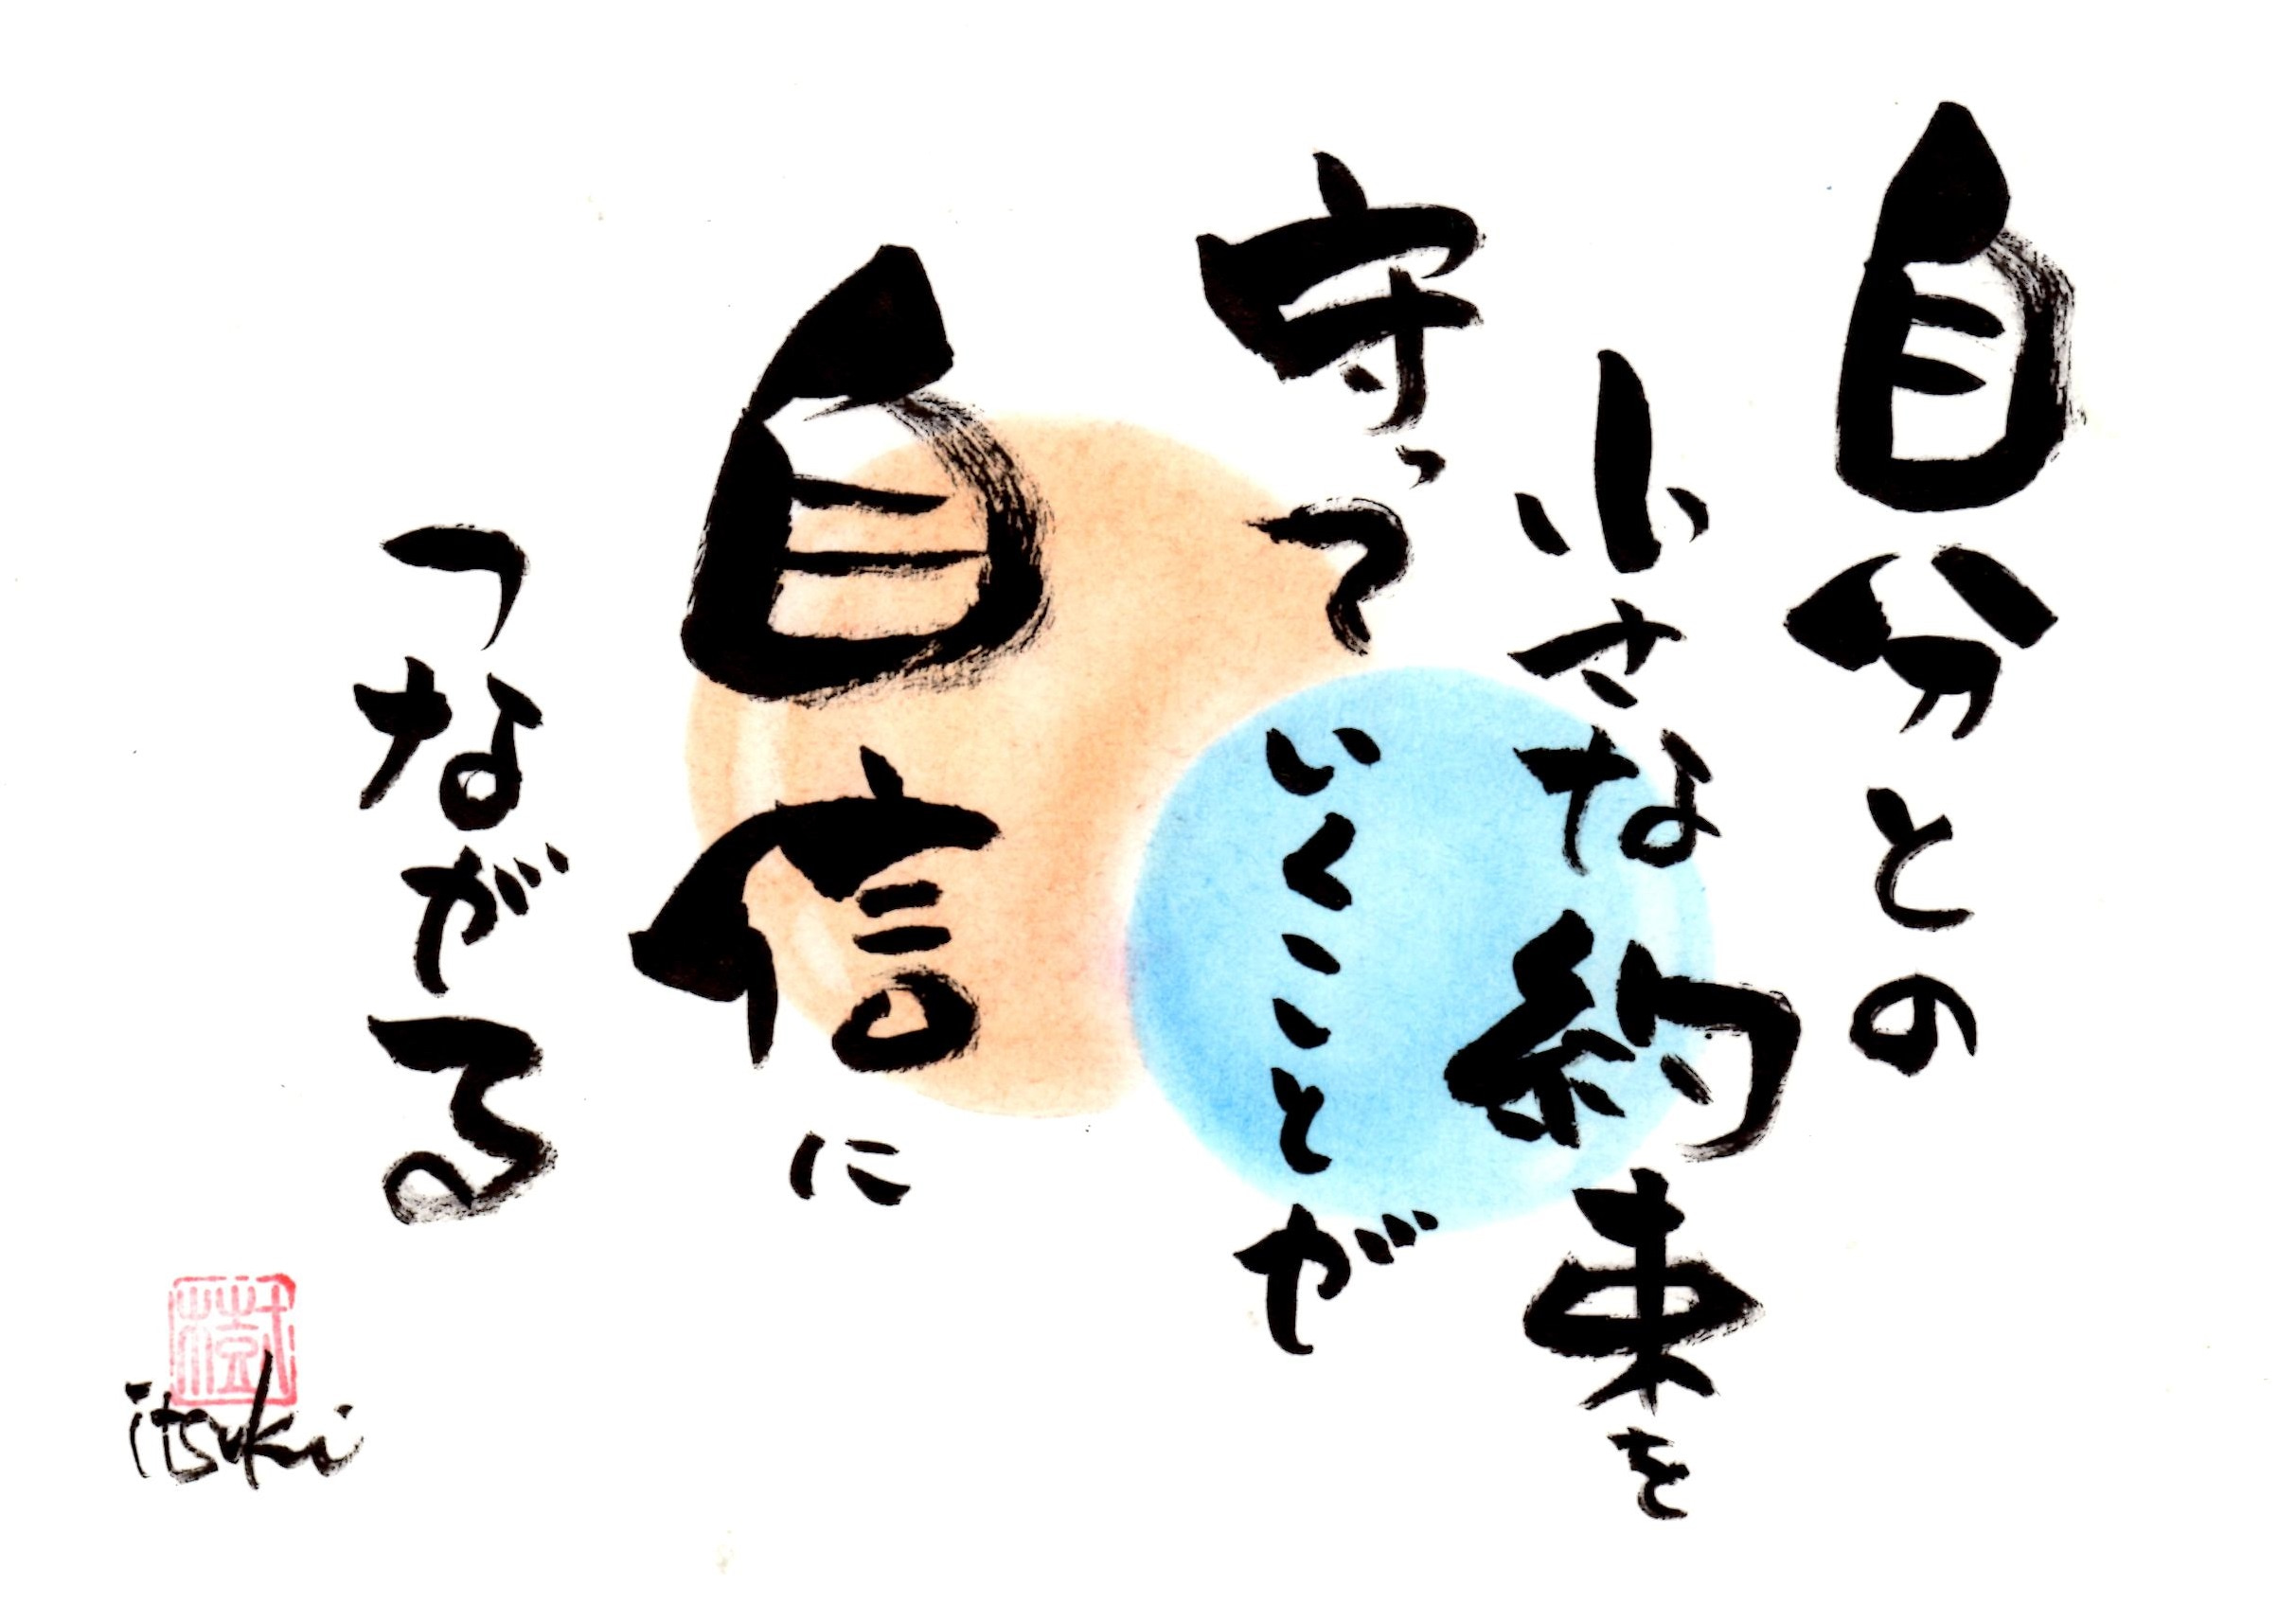 自分との
小さな約束を
守って
いくことが
自信に
つながる
樹
itsuki